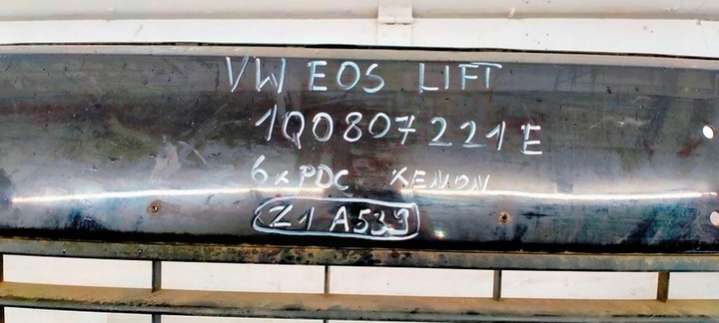 VW EOS LIFT
1Q0807221E
6xPDC XENON
Z1 A539